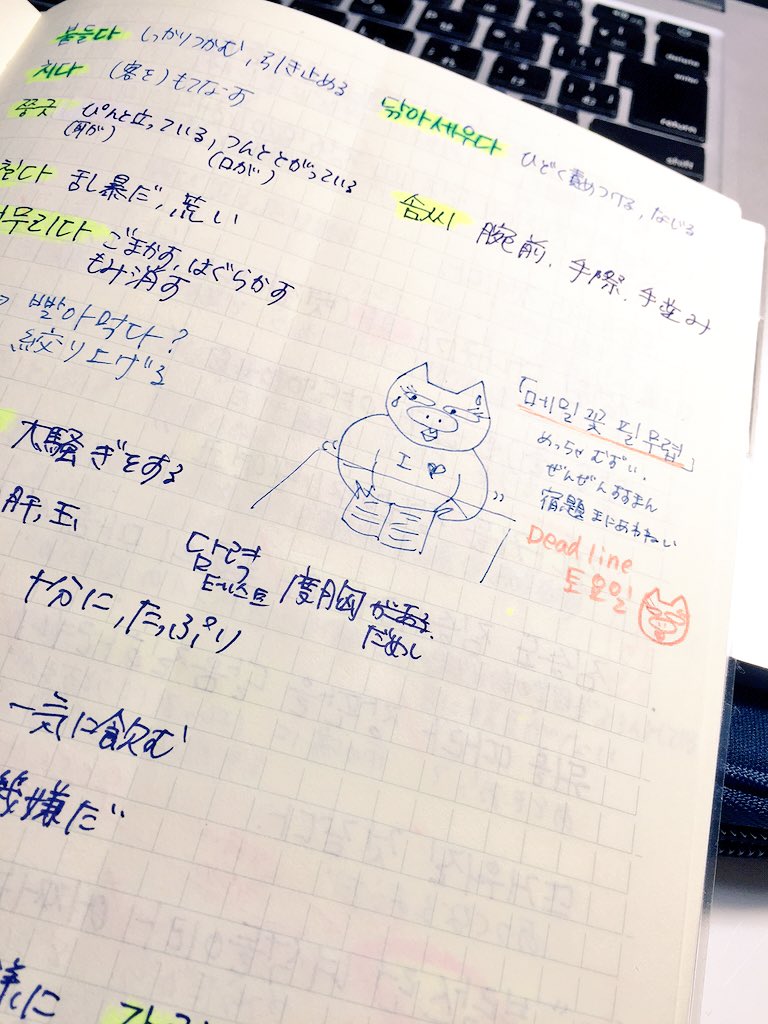 붙들다 しっかりつかむ, 引き止める
치다 (客を)もてなす
쫑긋 ぴんと立っている, つんととがっている
(耳が) (口が)
乱暴だ, 荒い
무리다 ごまかす, はぐらかす
もみ消す
빨아먹다?
絞り上げる
大騒ぎをする
肝, 玉
담력 度胸がある。
테스트 だめし
十分に, たっぷり
一気に飲む
機嫌だ
닦아세우다 ひどく責めつける, なじる
솜씨 腕前. 手際. 手並み
I ♡
「메밀꽃 필 무렵」
めっちゃむずい.
ぜんぜんすすまん
宿題まにあわない
Deadline
토요일